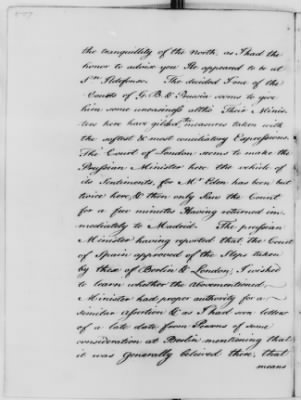 the tranquillity of the North, as I had the
honor to advise you He appeared to be at
Sn. Ildefonso. The decided Tone of the
Courts of G. B. & Prussia seems to give
him some uneasiness altho' Their Minis-
ters here have gilded the measures taken with
the softest & most conciliatory Expressions.
The Court of London seems to make the
Prussian Minister here the vehicle of
its Sentiments, for Mr. Eden has been but
twice here, & then only saw the Count
for a few minutes Having returned im-
mediately to Madrid. The prussian
Minister having reported that the Court
of Spain approved of the Steps taken
by these of Berlin & London; I wished
to learn whether the abovementioned
Minister had proper authority for a
similar assertion & as I had seen letters
of a late date from Persons of some
consideration at Berlin mentioning that
it was generally believed there, that
means